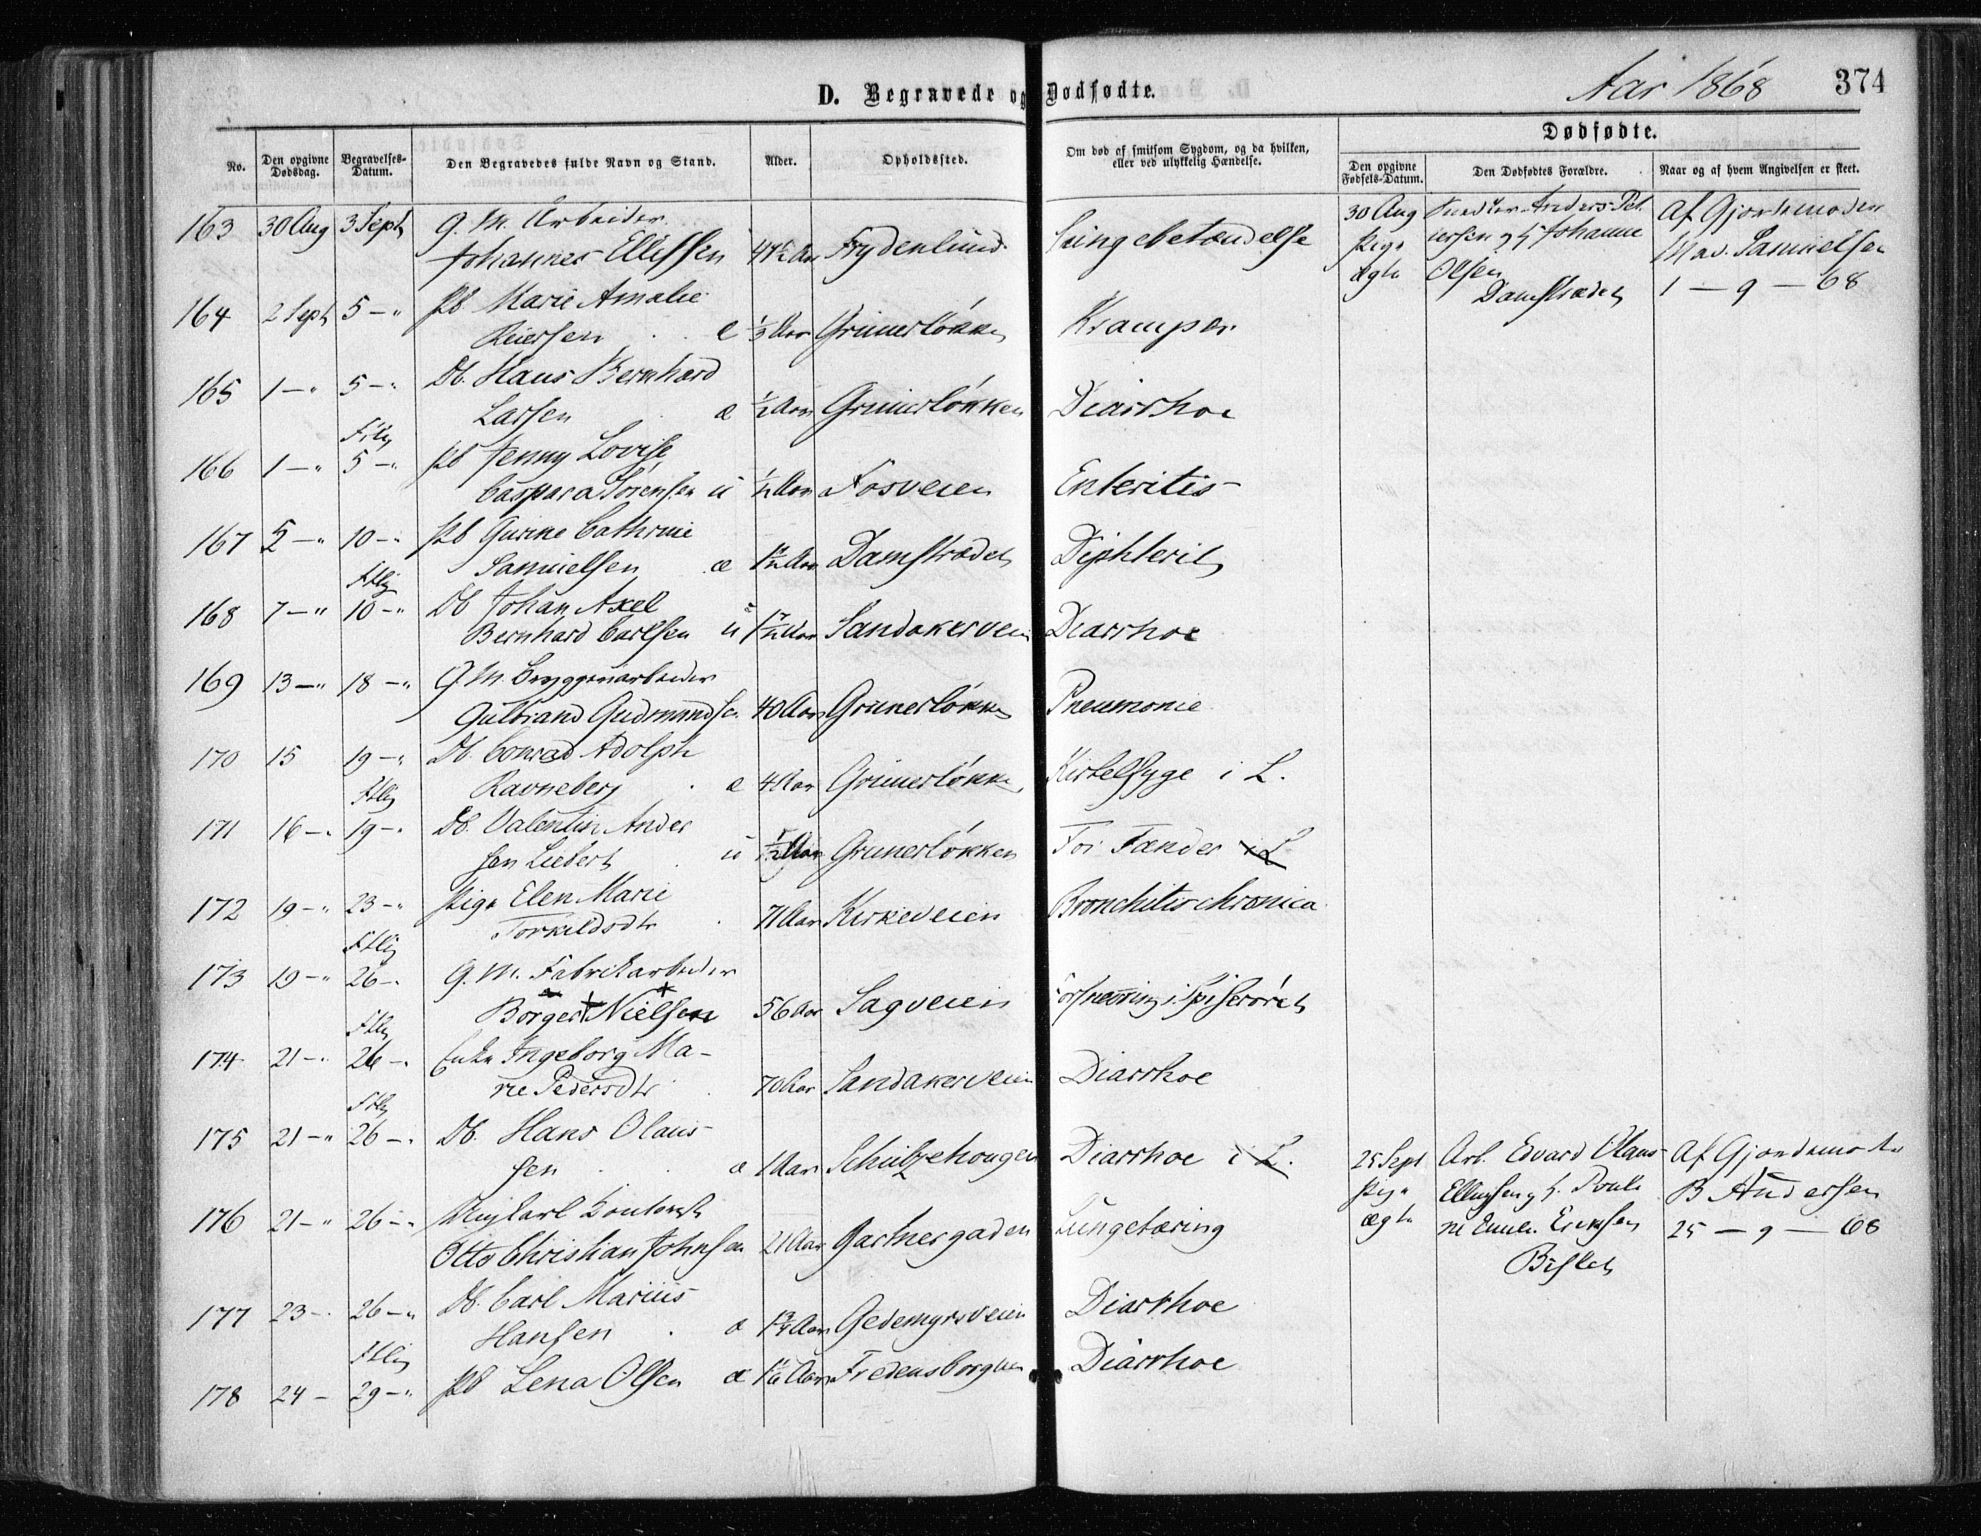 D. Begravede og Dødfødte.
Aar 1868
374
No.
Den opgivne Dødsdag.
Begravelses-Datum.
Den Begravedes fulde Navn og Stand.
Alder.
Opholdssted.
Om død af smitsom Sygdom, og da hvilken, eller ved ulykkelig Hændelse.
Dødfødte.
Den opgivne Fødsels-Datum.
Den Dødfødtes Forældre.
Naar og af hvem Angivelsen er skeet.
163 30 Aug 3 Sept G. M. Arbeider
Johannes Ellefsen Frydenlund
30 Aug Anders Pet
ersen og H. Johanne
Olsen
Damstrædet
Pige
ægte
Af Gjordemoder
Mad. Samuelsen
1 – 9 – 68
164 2 Sept 5 – " Pb Marie Amalie
Reiersen æ 1/3 Aar Grünerløkken Kramper
165 1 – " 5 – " Db. Hans Bernhard
Larsen æ 1/2 Aar Grünerløkken Diarrhoe
166 1 – " 5 – " Pb Jenny Lovise
Caspara Sørensen u Fosveien Enteritis
167 5 – " 10 – " Pb Gurine Cathrine
Samuelsen æ Damstrædet Diphterit
168 7 – " 10 – " Db Johan Axel
Bernhard Carlsen u Sandakerveien Diarrhoe
169 13 – " 18 – " G. M. Bryggeriarbeider
Gulbrand Gudmundsen 40 Aar Grünerløkken Pneumonie
170 15 19 – " Db. Conrad Adolph
Ravneberg æ 4 Aar Grünerløkken Kirtelsyge i L.
171 16 – " 19 – " Db. Valentin Ander
sen Liebert u Grünerløkken For Tænder i L
172 19 – " 23 – " Pige Elen Marie
Torkildsdtr 71 Aar Kirkeveien Bronchitis chronica
173 19 – " 26 – " G. M. Fabrikarbeider
Borger Nielsen 56 Aar Sagveien Forsnevring i Spiserøret
174 21 – " 26 – " Enke Ingeborg Ma-
rie Pedersdtr 70 Aar Sandakerveien Diarrhoe
175 21 – " 26 – " Db. Hans Olaus-
sen æ 1 Aar Schultzehougen Diarrhoe i L.
25 Sept
Pige
ægte
Arb. Edvard Olaus
Ellingsen og H.
Eriksen
Bislet
Af Gjordemoder
B Andersen
25 – 9 – 68
176 21 – " 26 – " Ungkarl
Otto Christian Johnsen 21 Aar Gartnergaden Lungetæring
177 23 – " 26 – " Db. Carl Marius
Hansen æ 1 3/4 Aar Gedemyrsveien Diarrhoe
178 24 – 29 – " Pb Lena Olsen æ Fredensborgveien Diarrhoe